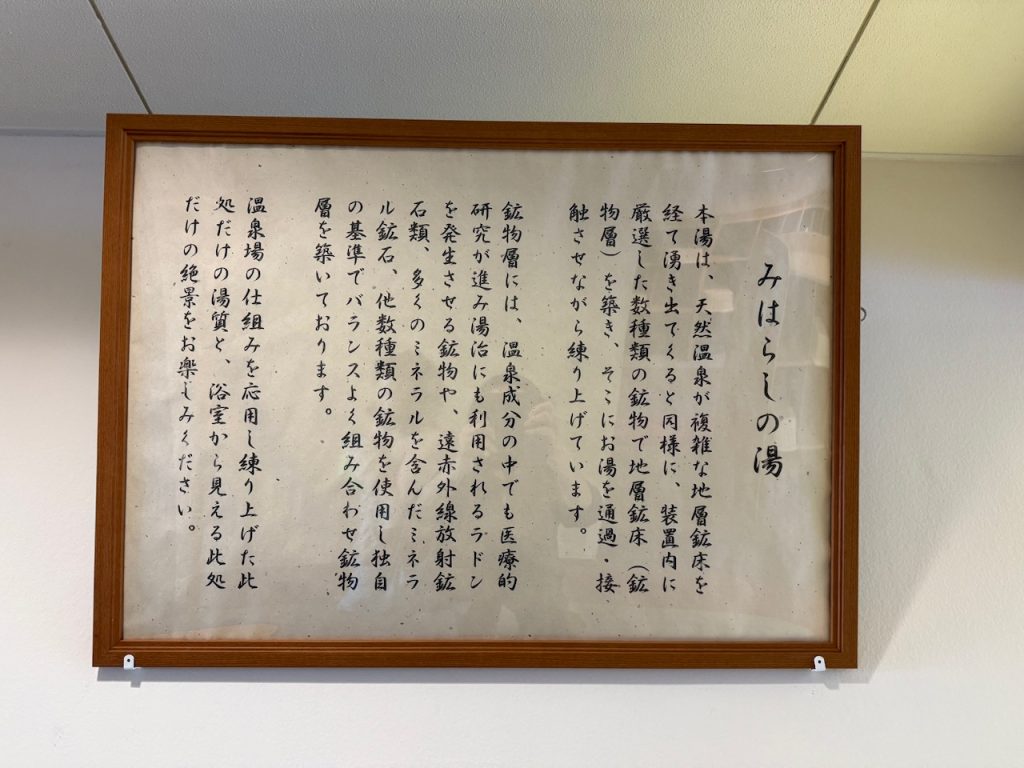 みはらしの湯
本湯は、天然温泉が複雑な地層鉱床を
経て湧き出てくると同様に、装置内に
厳選した数種類の鉱物で地層鉱床（鉱
物層）を築き、そこにお湯を通過・接
触させながら練り上げています。
鉱物層には、温泉成分の中でも医療的
研究が進み湯治にも利用されるラドン
を発生させる鉱物や、遠赤外線放射鉱
石類、多くのミネラルを含んだミネラ
ル鉱石、他数種類の鉱物を使用し独自
の基準でバランスよく組み合わせ鉱物
層を築いております。
温泉場の仕組みを応用し練り上げた此
処だけの湯質と、浴室から見える此処
だけの絶景をお楽しみください。